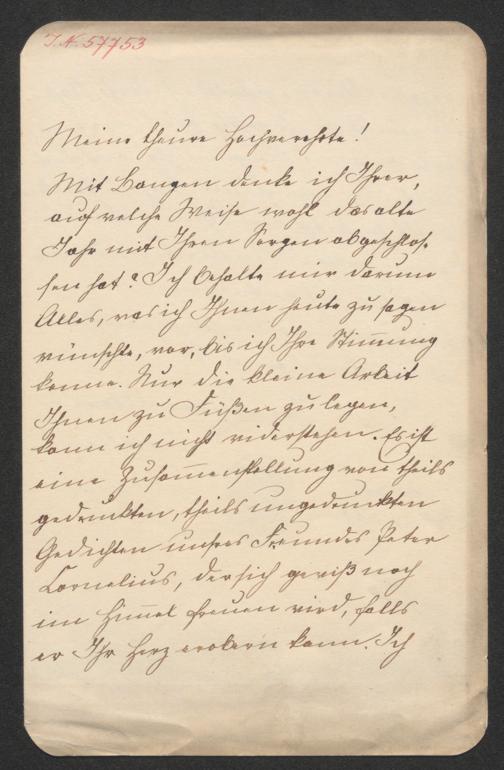 I.N. 57753
Meine theure Hochverehrte!
Mit Bangen denke ich Ihrer,
auf welche Weise wohl das alte
Jahr mit Ihren Sorgen abgeschlos-
sen hat? Ich behalte mir darum
Alles, was ich Ihnen heute zu sagen
wünschte, vor, bis ich Ihre Stimmung
kenne. Nur die kleine Arbeit
Ihnen zu Füßen zu legen,
kann ich nicht widerstehen. Es ist
eine Zusammenstellung von theils
gedruckten, theils ungedruckten
Gedichten unsres Freundes Peter
Cornelius, der sich gewiß noch
im Himmel freuen wird, falls
er Ihr Herz erobern kann. Ich